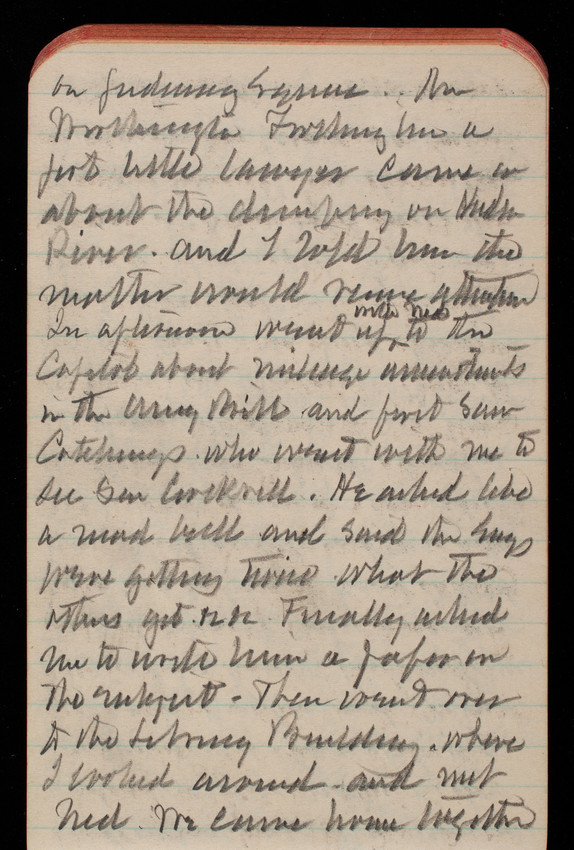 on Judiciary Square. Mr
Worthington Forthing him a
fat little lawyer came in
about the dumping on Hudson
River. and I told him the
matter would receive attention
In afternoon went up with Ned to the
Capitol about mileage amendments
in the Army Bill and first saw
Catchings who went with me to
see Sen Cockrell. He acted like
a mad bull and said the Engs
were getting twice what the
others get &c &c Finally asked
me to write him a paper on
the subject - Then went over
to the Library Building. where
I looked around and met
Ned. We came home together